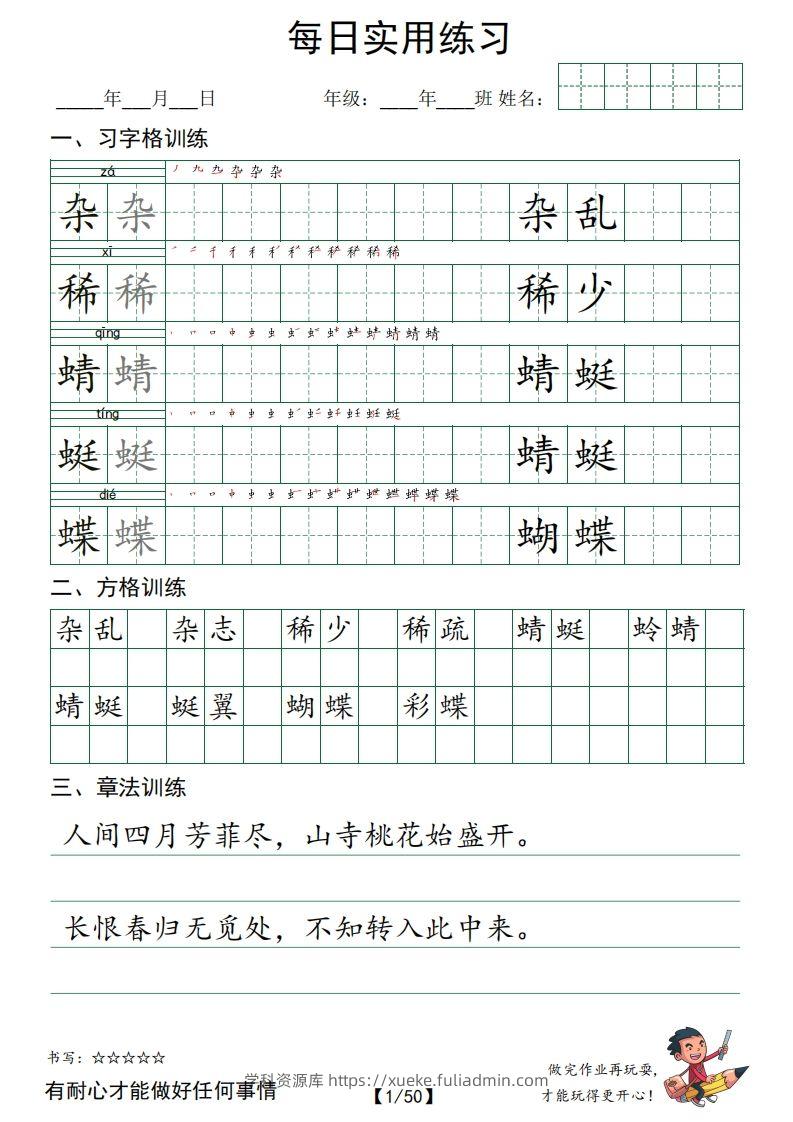 每日实用练习
_____年___月___日 年级：____年____班 姓名：
一、习字格训练
zá
杂 杂 杂 乱
xī
稀 稀 稀 少
qīng
蜻 蜻 蜻 蜓
tíng
蜓 蜓 蜻 蜓
dié
蝶 蝶 蝴 蝶
二、方格训练
杂乱 杂志 稀少 稀疏 蜻蜓 蛉蜻
蜻蜓 蜓翼 蝴蝶 彩蝶
三、章法训练
人间四月芳菲尽，山寺桃花始盛开。
长恨春归无觅处，不知转入此中来。
书写：☆☆☆☆☆
学科资源库 https://xueke.fuliadmin.com
有耐心才能做好任何事情
【1/50】
做完作业再玩耍，
才能玩得更开心！